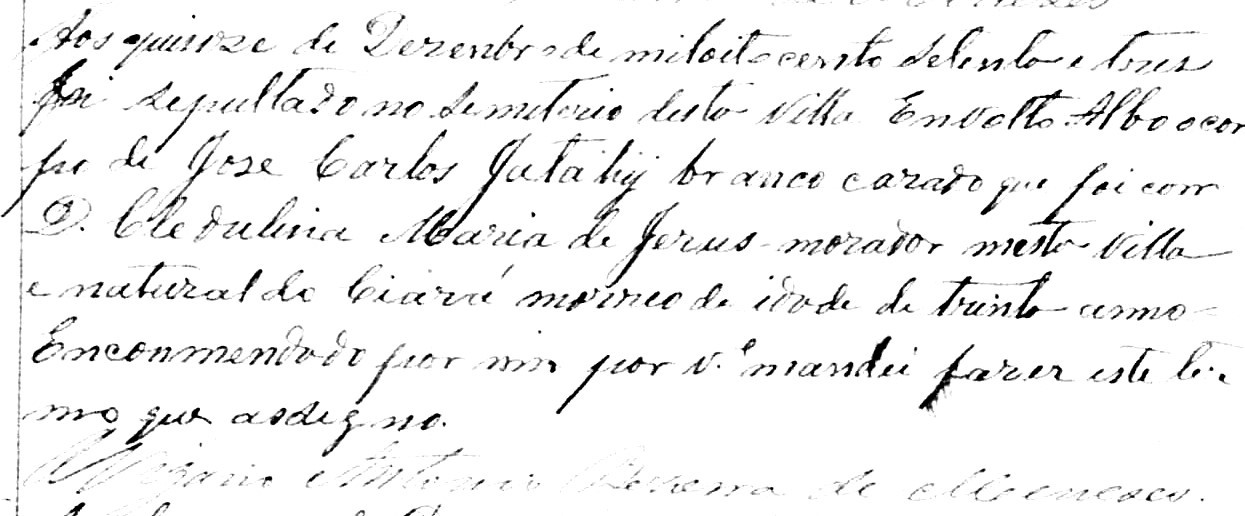 Aos quinze de Dezenbro de mil oito cento setenta e tres
foi sepultado no semiterio desta Villa Envolto Albo o cor
po de Jose Carlos Jatahÿ branco cazado que foi com
D. Cledulina Maria de Jezus morador nesta Villa
e natural do Ciará morreo de idade de trinta anno
Enconmendado por mim por v.e mandei fazer este ter
mo que assigno.
O Vigario Antonio Bezerra de Menezes.